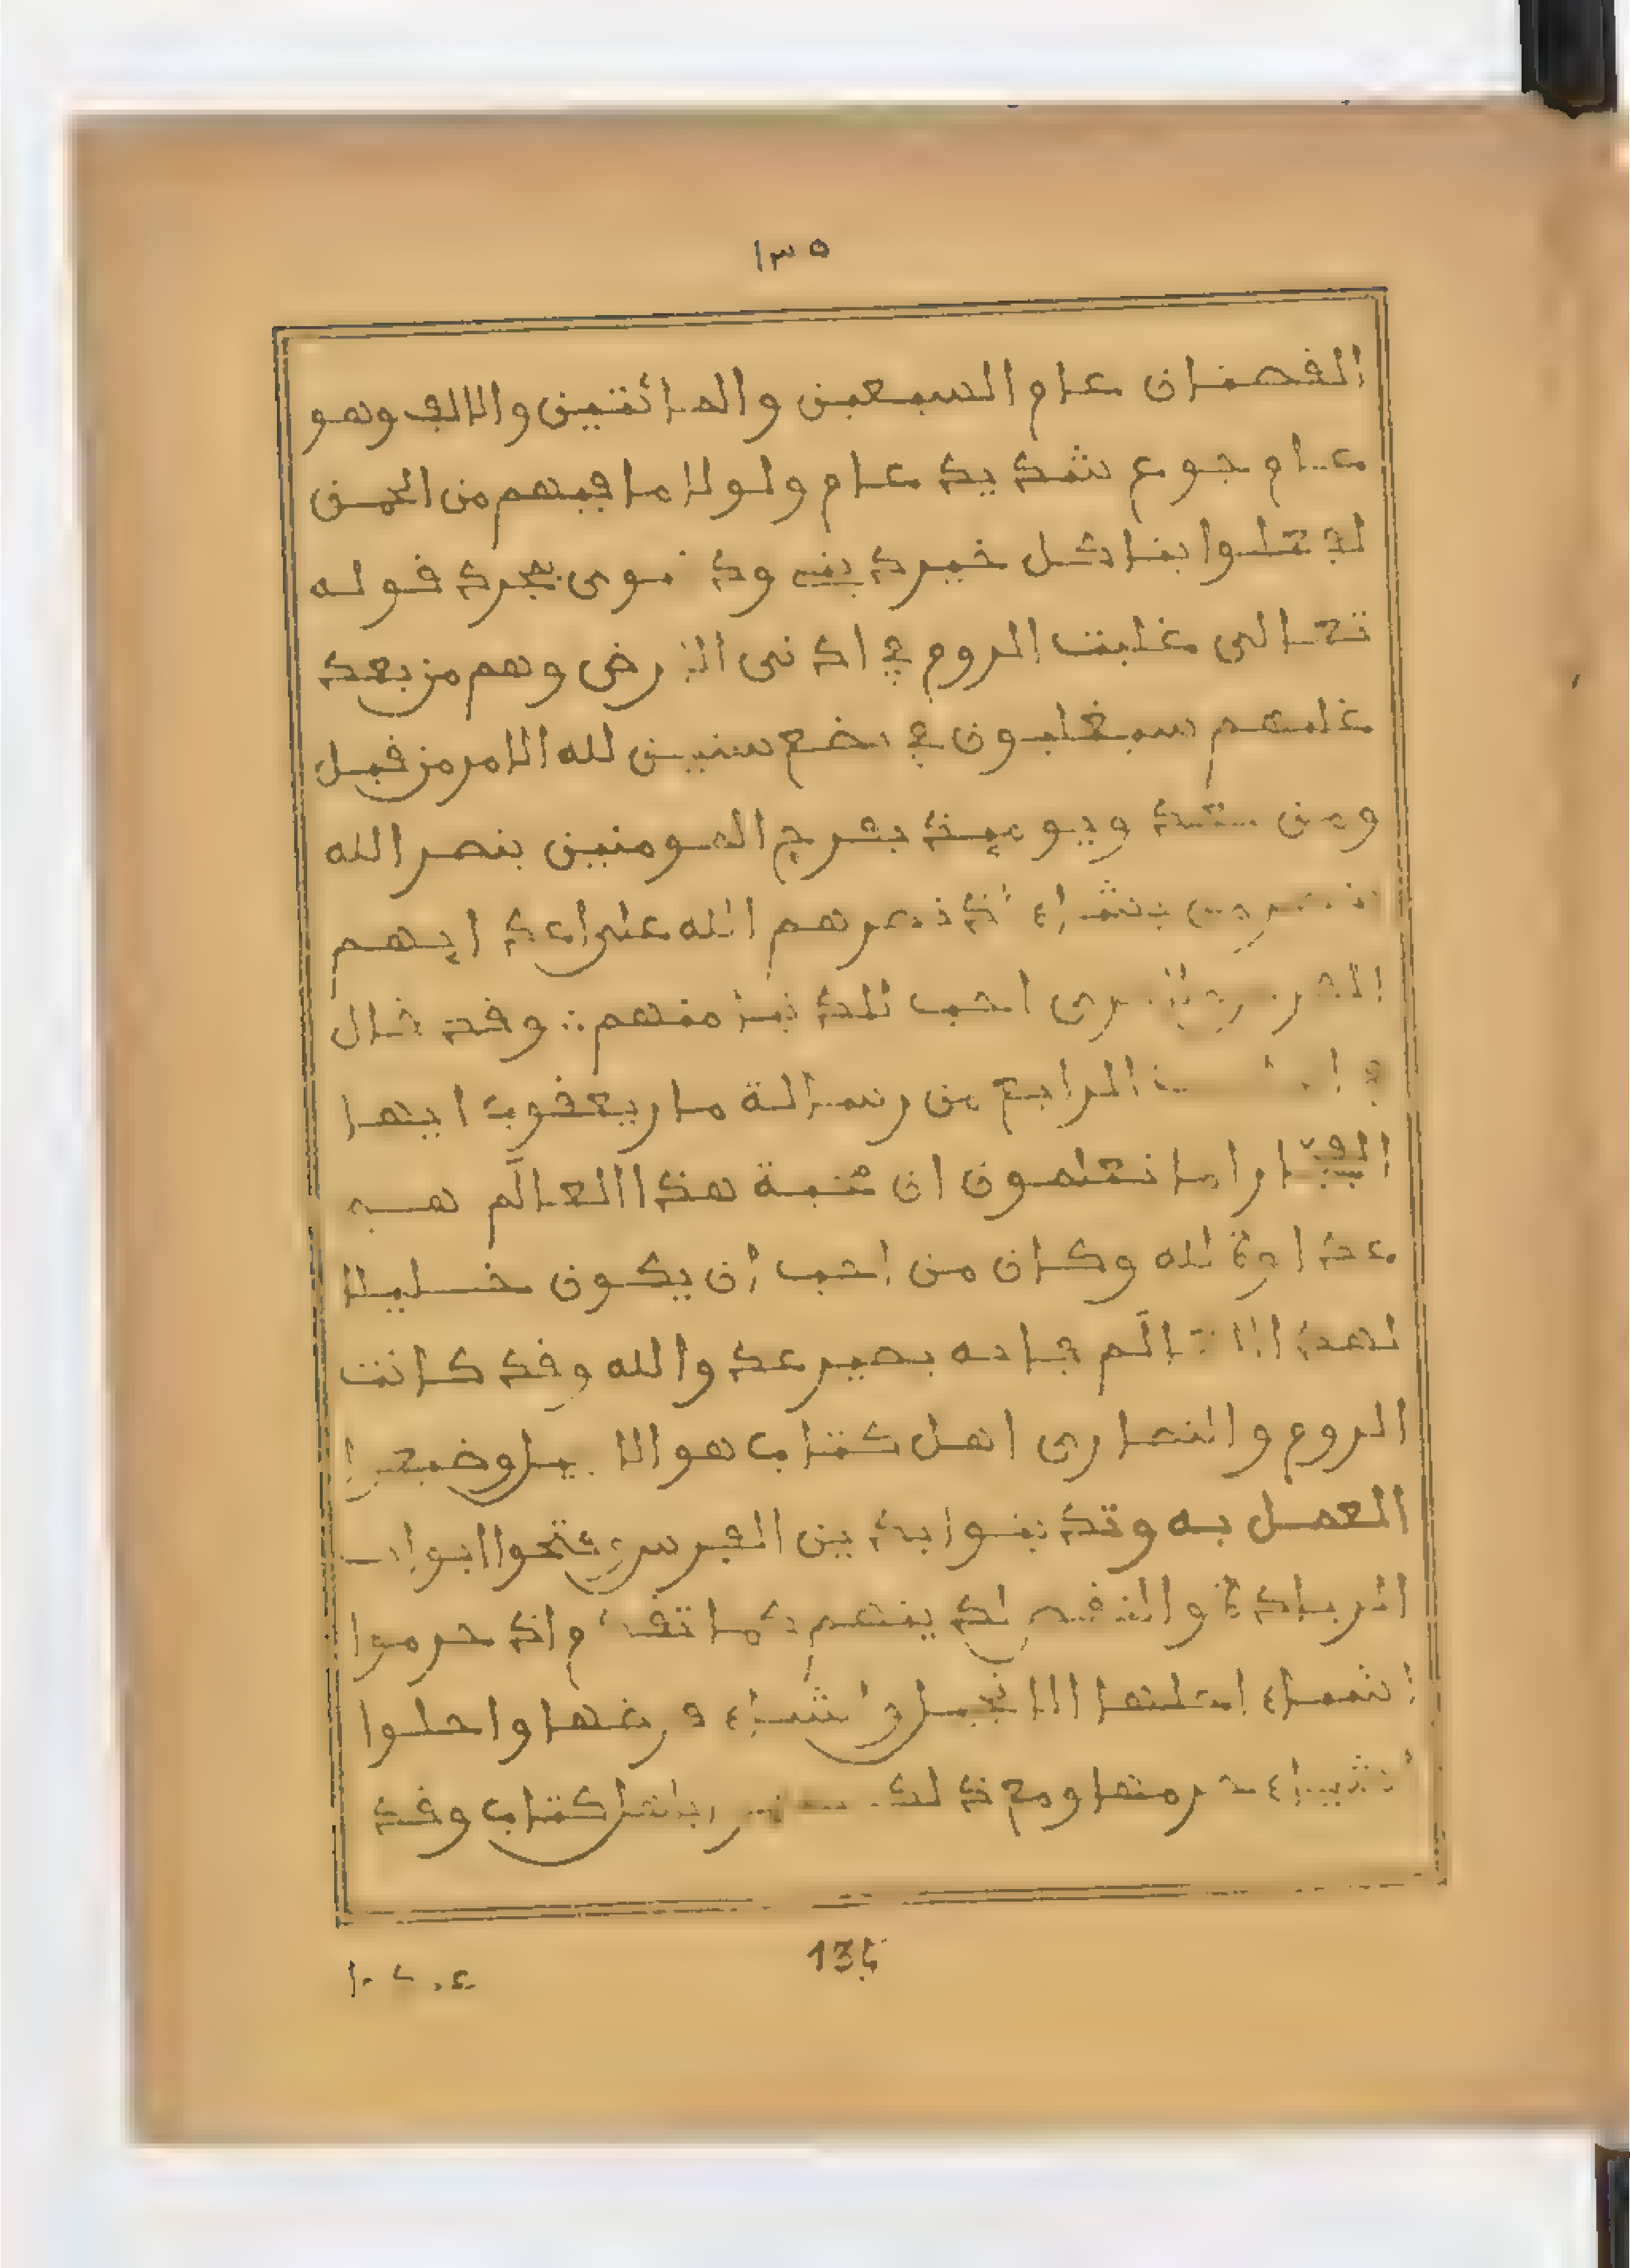 ١٣٥
الفحصان عام السبعين والمائتين والالف وهو
عام جوع شديد عام ولولا ما فيهم من الحمق
لفعلوا بنا كل خير دين ود نيوى بمجرد قوله
تعالى غلبت الروم في ادنى الارض وهم من بعد
غلبهم سيغلبون في بضع سنين لله الامر من قبل
ومن بعد ويومئذ يفرح المومنين بنصر الله
نصرهم الله على اعدايهم
احب للدنيا منهم وقد قال
الرابع من رسالة مار يعقوب ايها
الفجار اما تعلمون ان محبة هذا العالم هي
عداوة لله وكان من احب أن يكون خليلا
لهذا العالم فانه يصير عدو الله وقد كانت
الروم والنصارى اهل كتاب هو الانجيل وضيعوا
العمل به وتدينوا بدين الفرس وفتحوا ابواب
الزيادة والنقص لدينهم كما تقدم اذ حرموا
اشياء احلها الانجيل واشياء وا حلوا
اشياء حرمها ومع ذلك اهل كتاب وقد
135